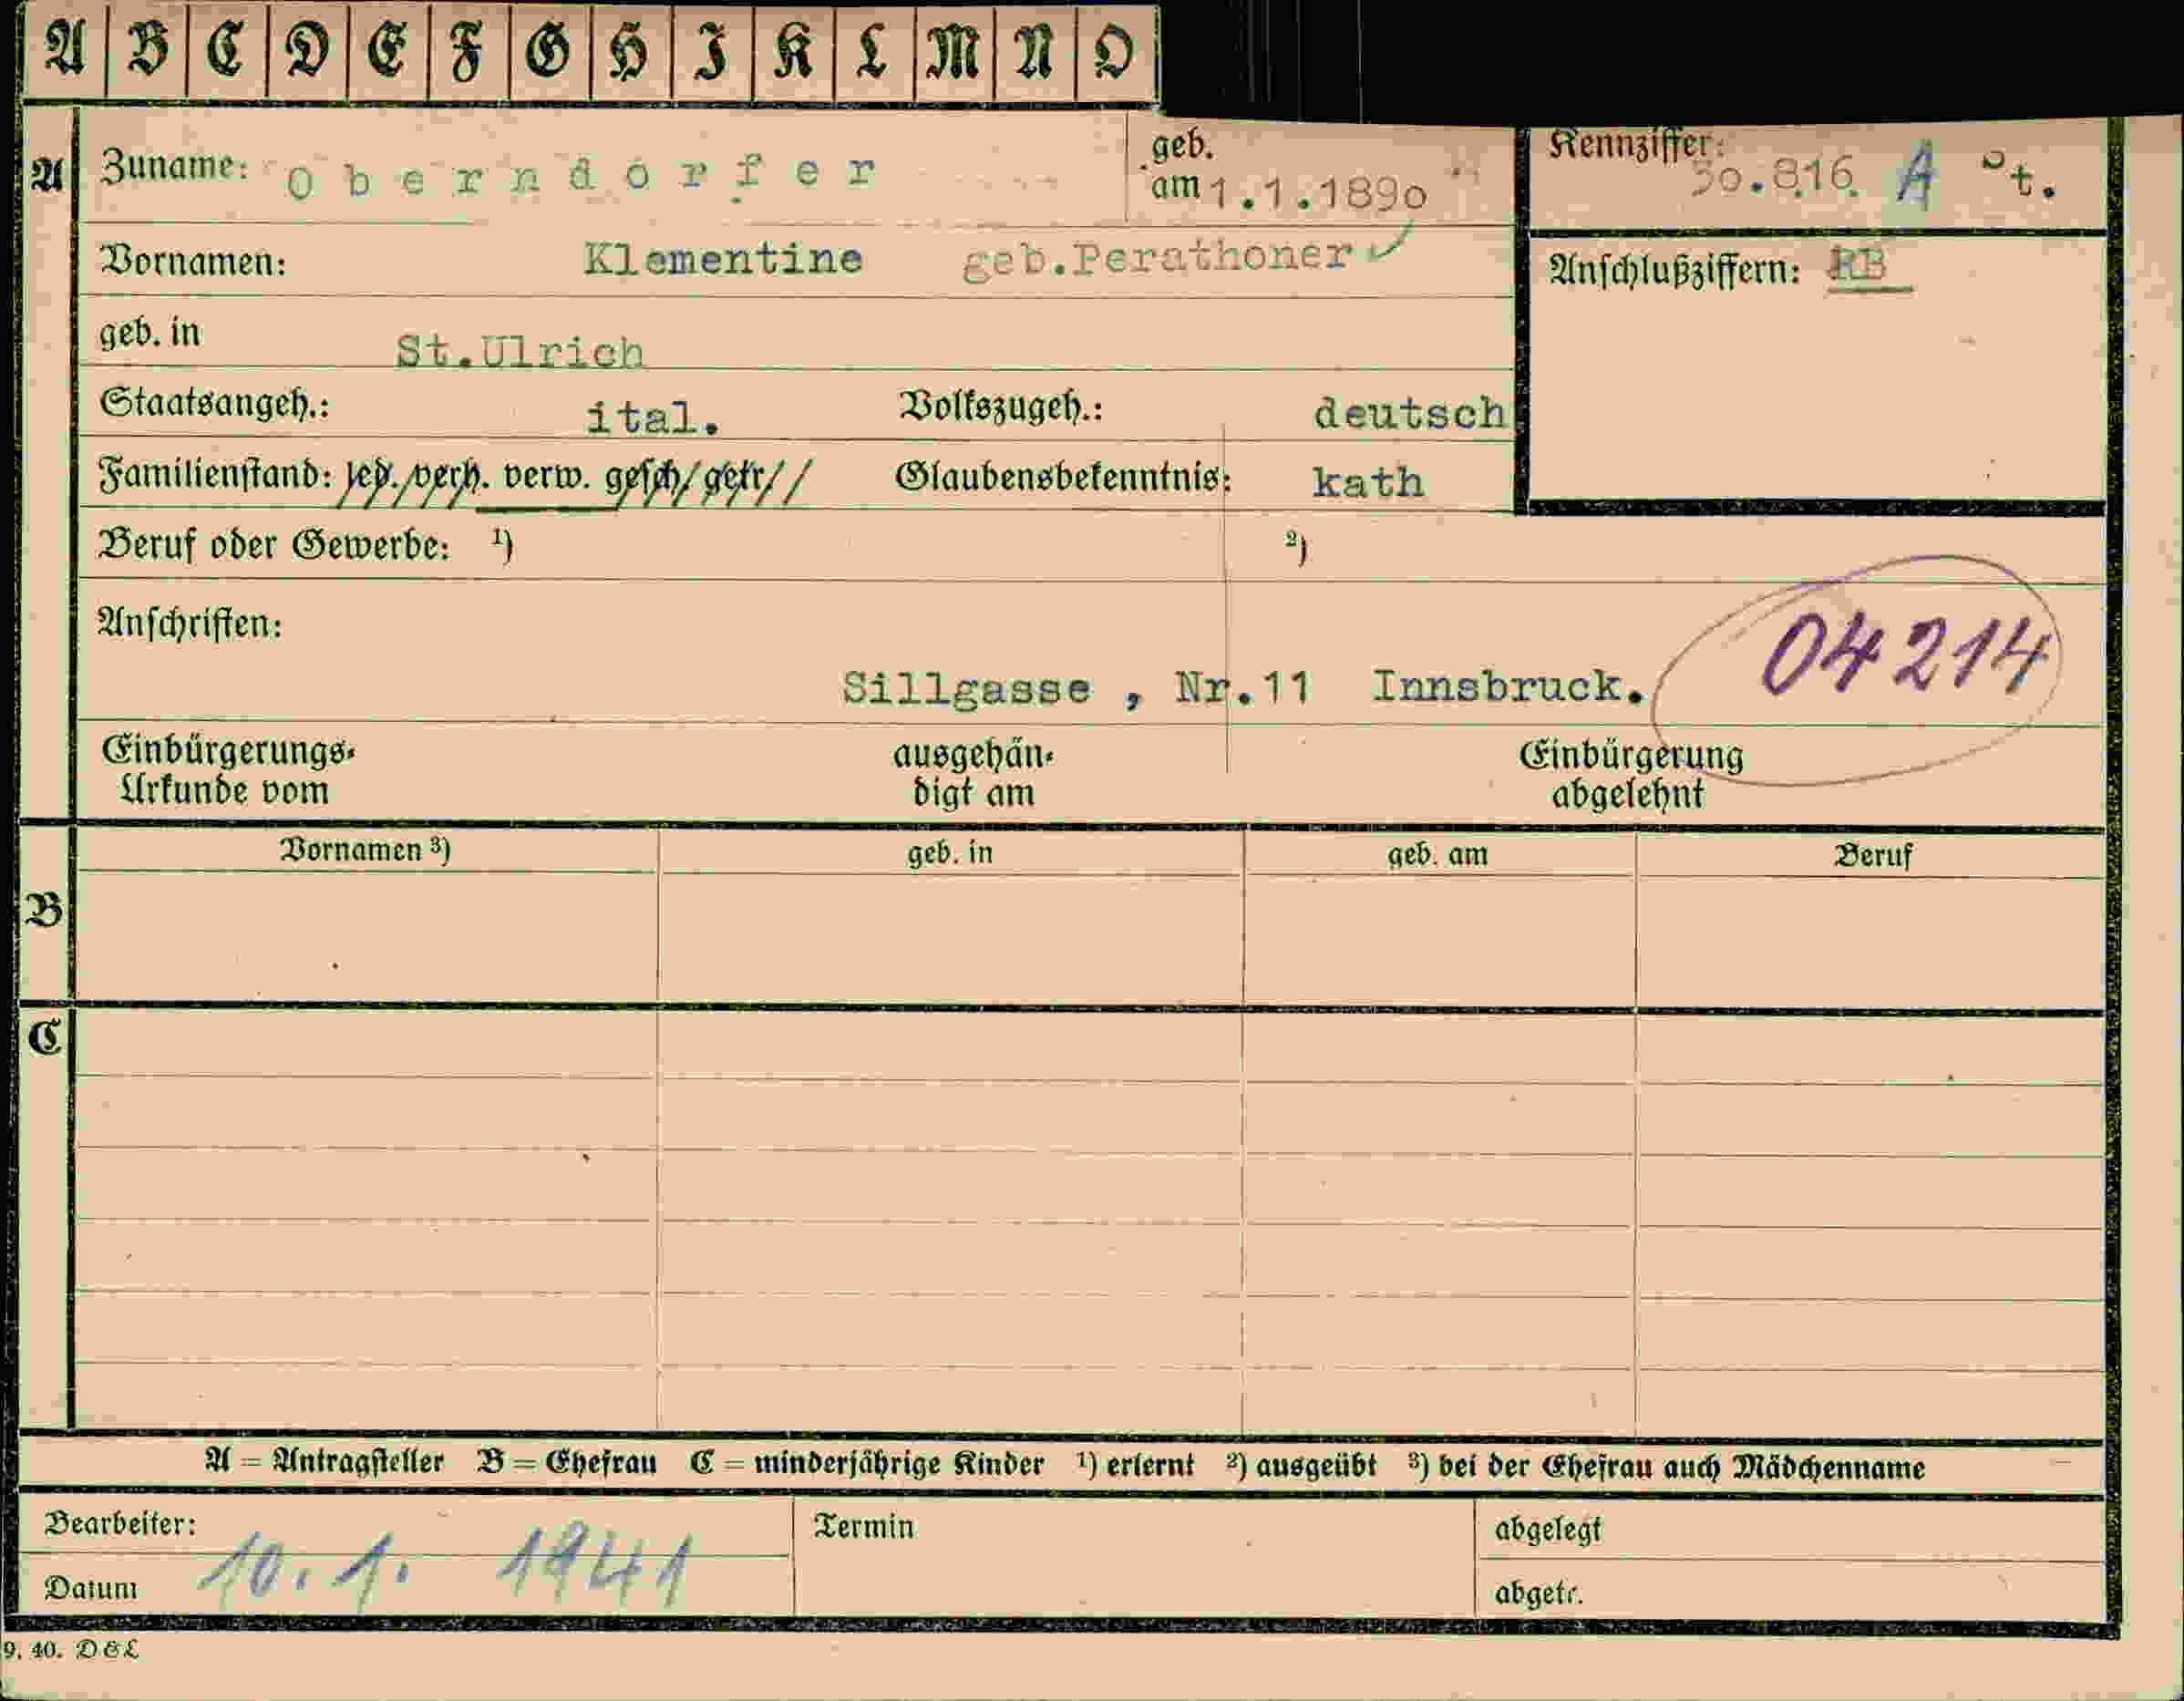 A B C D E F G H I K L M N O
A Zuname: oberndorfer geb. am 1.1.1890 Kennziffer: 30.816. A St.
Vornamen: Klementine geb.Perathoner Anschlußziffern: RB
geb. in St.Ulrich
Staatsangeh.: ital. Volkszugeh.: deutsch
Familienstand: led. verh. verw. gesch/getr// Glaubensbekenntnis: kath
Beruf oder Gewerbe: 1) 2)
Anschriften: 04214
Sillgasse , Nr.11 Innsbruck.
Einbürgerungs- ausgehän- Einbürgerung
Urkunde vom digt am abgelehnt
Vornamen 3) geb. in geb. am Beruf
B
C
A = Antragsteller B = Ehefrau C = minderjährige Kinder 1) erlernt 2) ausgeübt 3) bei der Ehefrau auch Mädchenname
Bearbeiter: Termin abgelegt
Datum 10. 1. 1941 abgetr.
9. 40. D&L